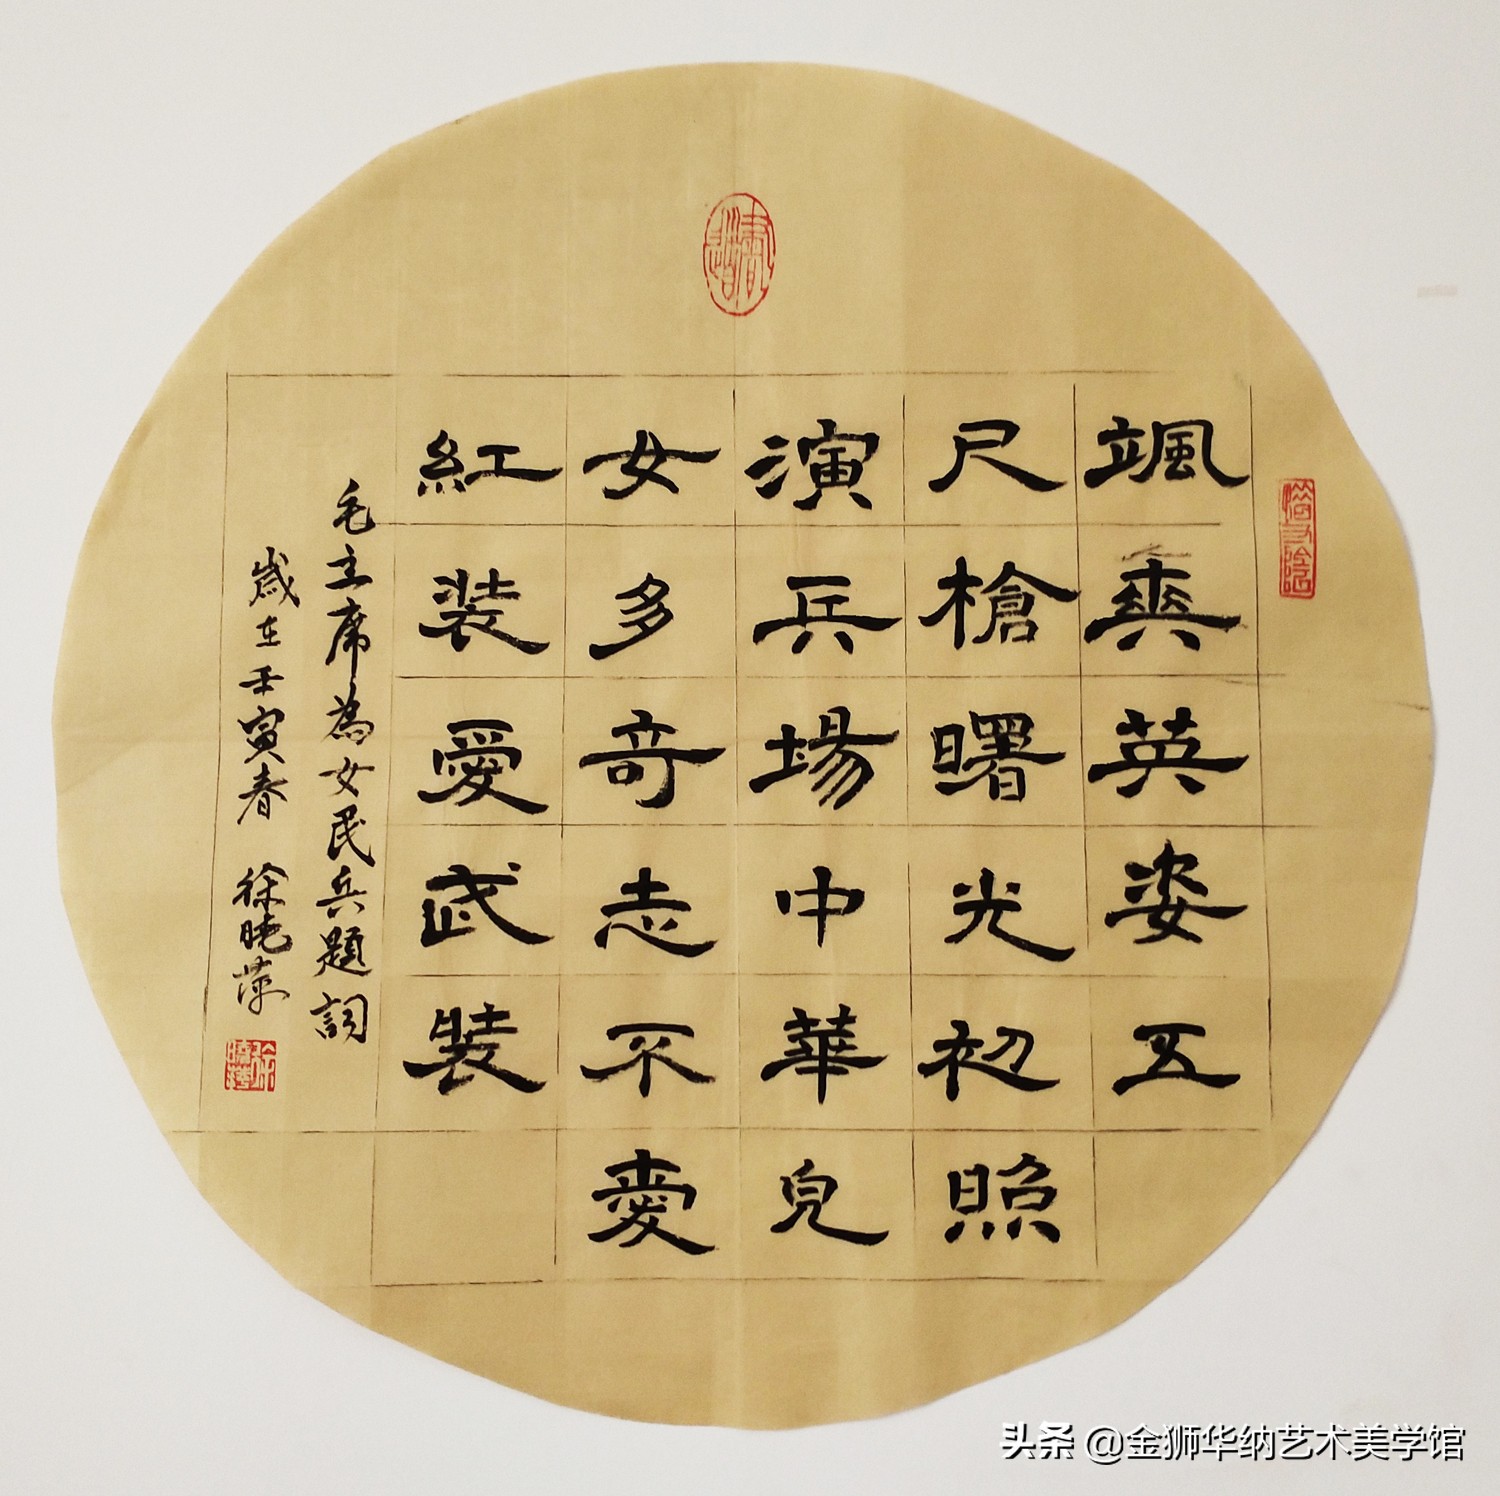 颯爽英姿五
尺槍曙光初照
演兵場中華兒
女多奇志不愛
紅装愛武裝
毛主席為女民兵題詞
歲在壬寅春 徐曉萍
徐曉萍
头条 @金狮华纳艺术美学馆